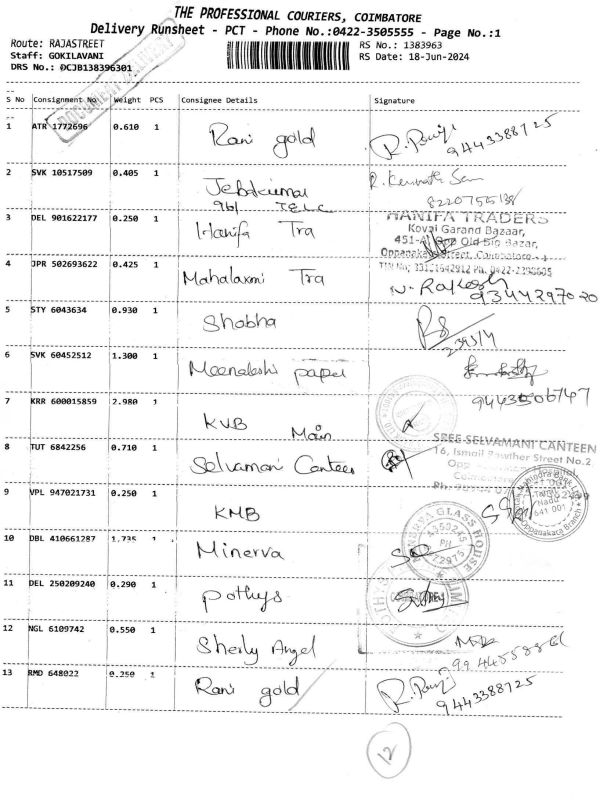 THE PROFESSIONAL COURIERS, COIMBATORE
Delivery Runsheet - PCT - Phone No.:0422-3505555 - Page No.:1
Route: RAJASTREET
RS No.: 1383963
Staff: GOKILAVANI
RS Date: 18-Jun-2024
DRS No.: DCJB138396301
DOCUMENT DELIVERY
S No Consignment No Weight PCS Consignee Details Signature
1 ATR 1772696 0.610 1 Rani gold
9443388725
2 SVK 10517509 0.405 1 Jebakumar
961 T.E.L.C
3 DEL 901622177 0.250 1 Hanifa Tra
HANIFA TRADERS
Kovai Garand Bazaar,
Old Bio Bazar,
Oppanakara Street, Coimbatore
4 JPR 502693622 0.425 1 Mahalaxmi Tra
N. Rakesh
9344297020
5 STY 6043634 0.930 1 Shobha
6 SVK 60452512 1.300 1 Meenakshi paper
7 KRR 600015859 2.980 1 KVB Main
8 TUT 6842256 0.710 1 Selvamani Canteen
SREE SELVAMANI CANTEEN
16, Ismail Rawther Street No.2
9 VPL 947021731 0.250 1 KMB
641 001
Oppanakara Branch
10 DBL 410661287 1.735 1 Minerva
MINERVA GLASS HOUSE
4350245
PH
11 DEL 250209240 0.290 1 Pothys
12 NGL 6109742 0.550 1 Sherly Angel
13 RMD 648022 0.250 1 Rani gold
9443388725
12